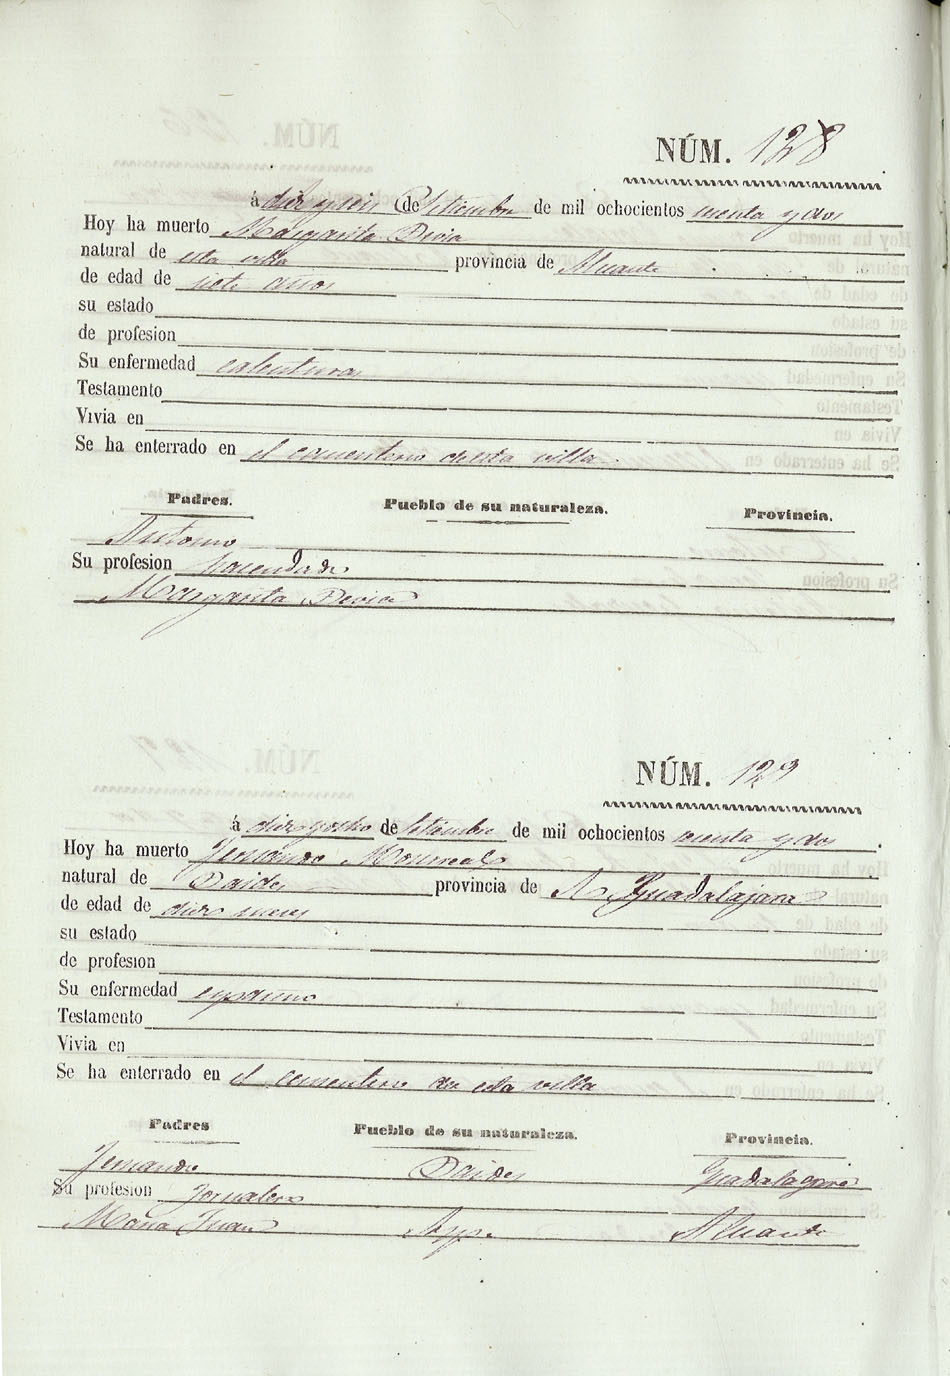 NÚM. 128
á diez y seis de Setiembre de mil ochocientos sesenta y dos
Hoy ha muerto Margarita Devia
natural de esta villa provincia de Alicante
de edad de siete años
su estado
de profesion
Su enfermedad calentura
Testamento
Vivia en
Se ha enterrado en el cementerio de esta villa
Padres. Pueblo de su naturaleza. Provincia.
Antonio
Su profesion hacendado
Margarita Devia
NÚM. 129
á diez y ocho de Setiembre de mil ochocientos sesenta y dos
Hoy ha muerto Fernando Monreal
natural de Baides provincia de A Guadalajara
de edad de diez meses
su estado
de profesion
Su enfermedad espasmo
Testamento
Vivia en
Se ha enterrado en el cementerio de esta villa
Padres Pueblo de su naturaleza. Provincia.
Fernando Baides Guadalajara
Su profesion Jornalero
Maria Juan Alicante